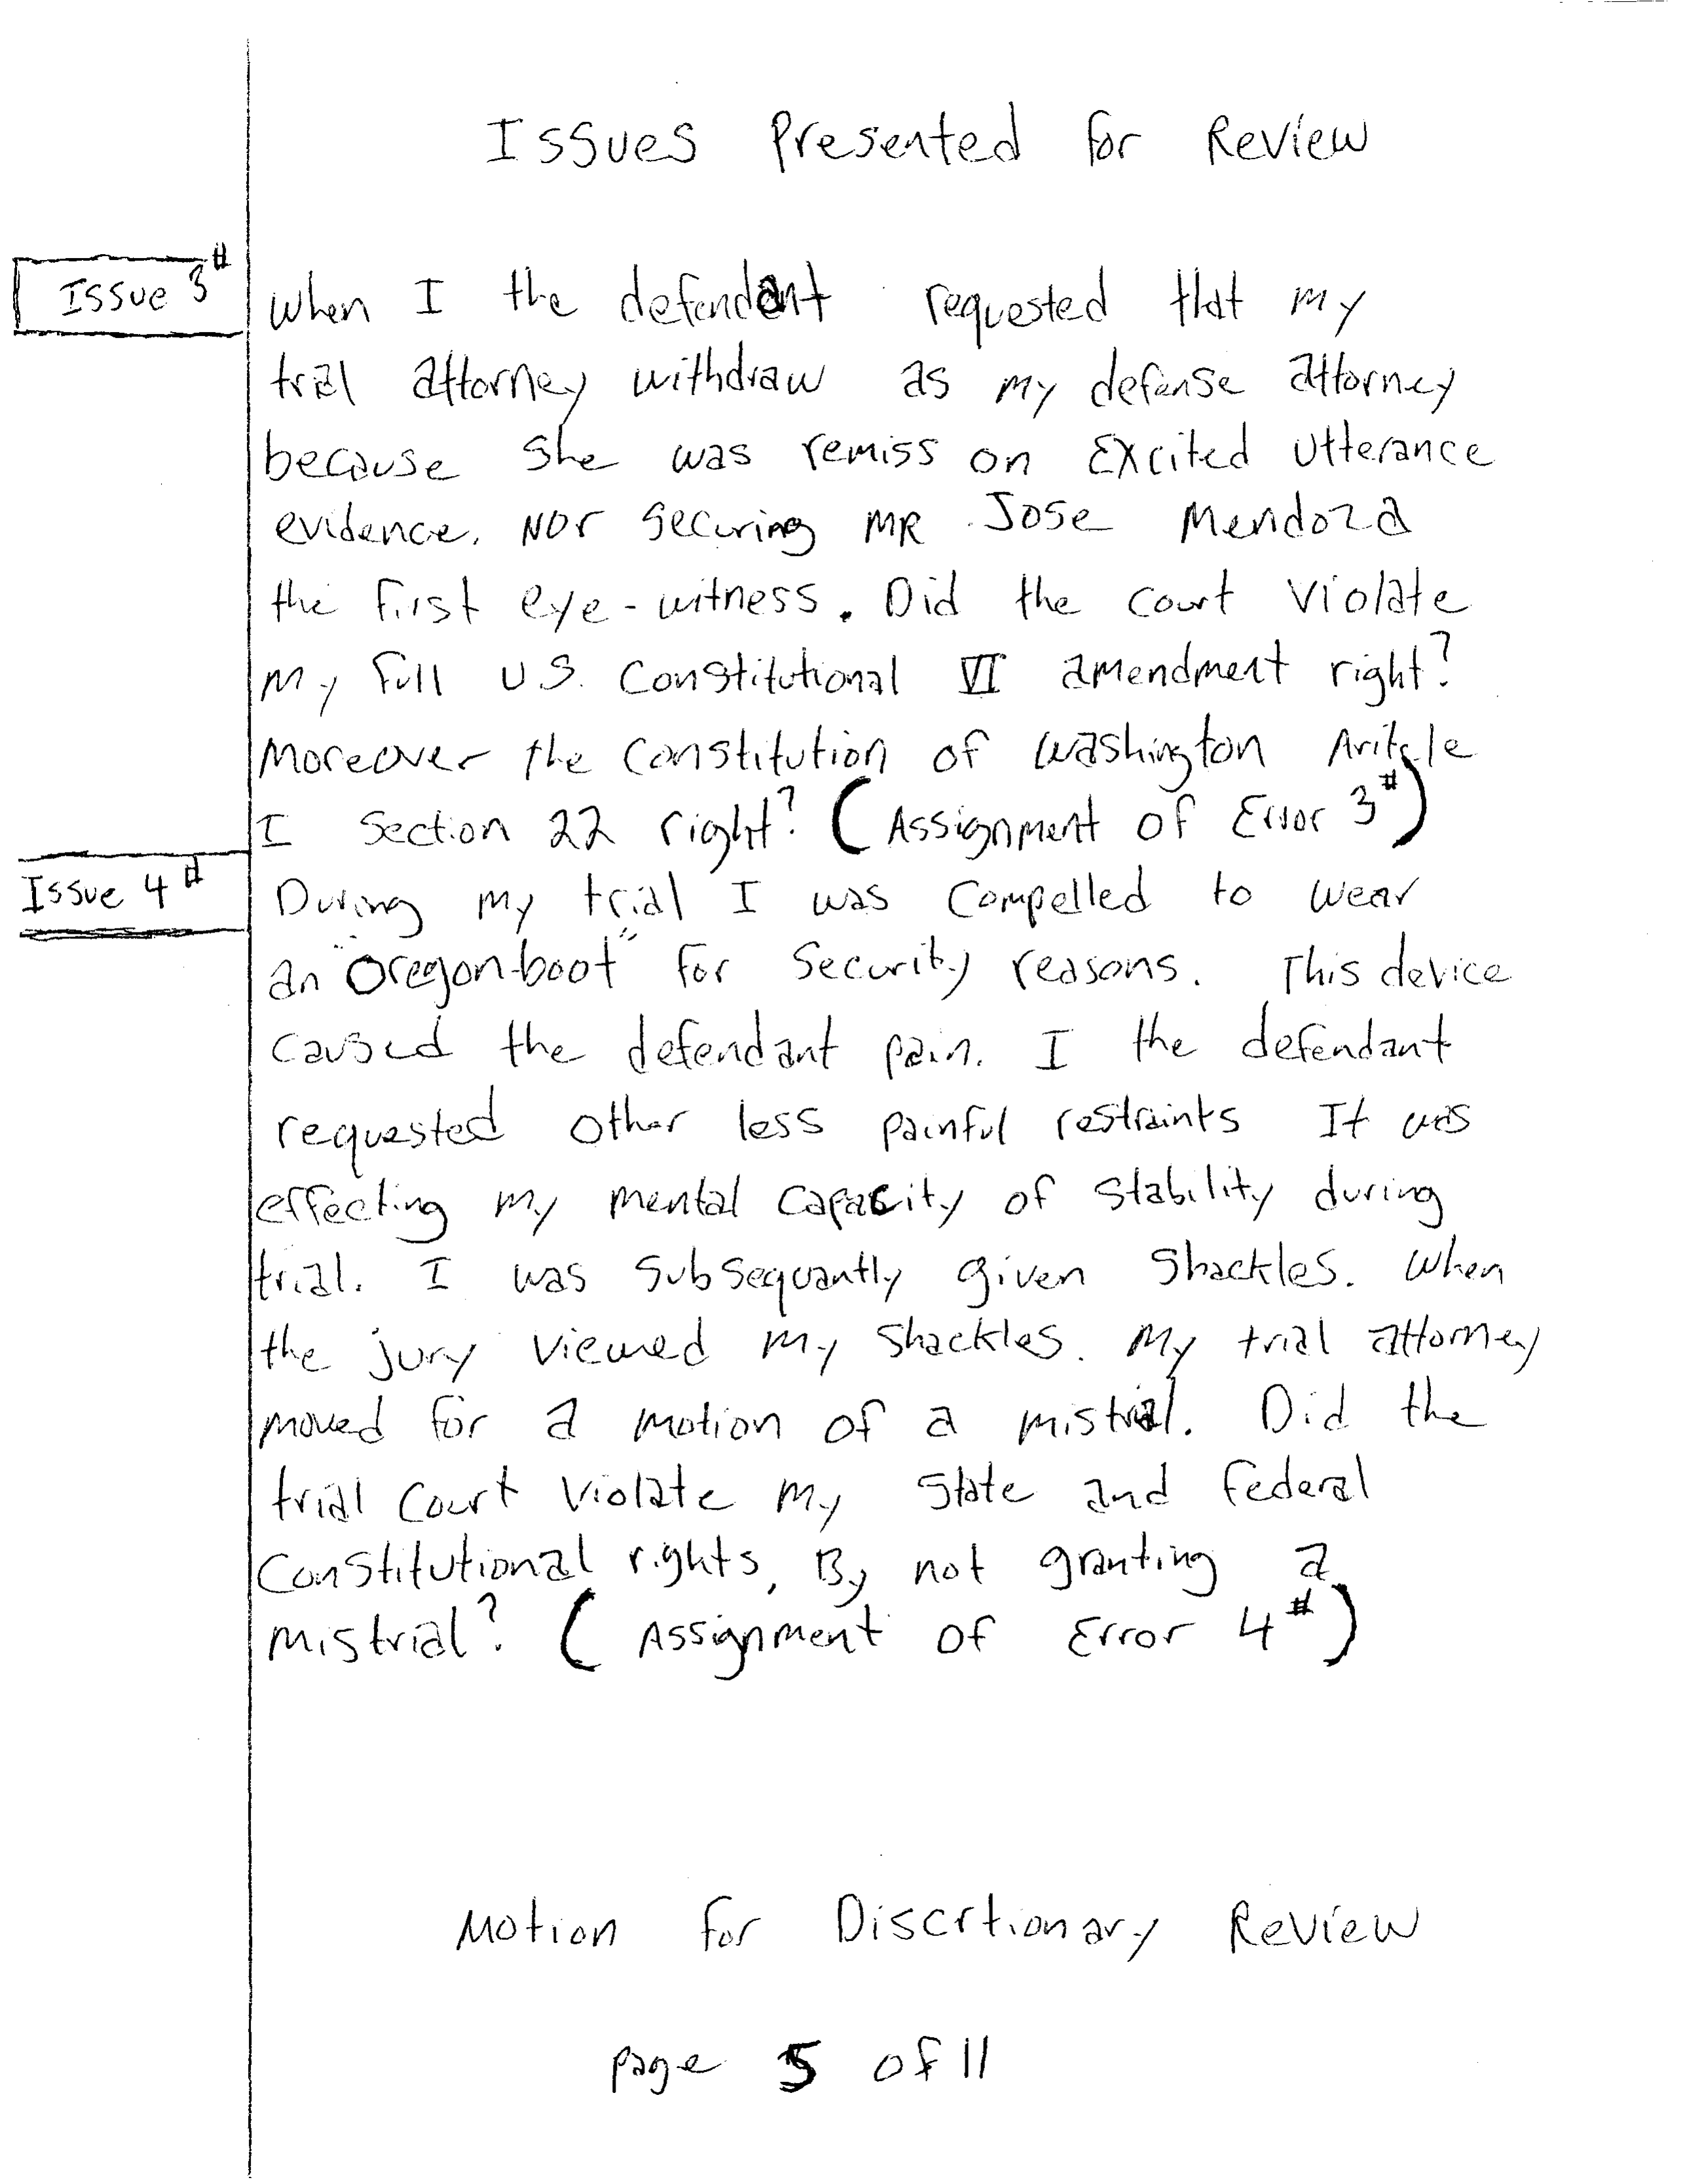 Issues Presented for Review
Issue 3#
When I the defendant requested that my
trial attorney withdraw as my defense attorney
because she was remiss on Excited Utterance
evidence. Nor securing MR Jose Mendoza
the first eye-witness. Did the court violate
my full U.S. Constitutional VI amendment right?
Moreover the Constitution of Washington Aritcle
I Section 22 right? (Assignment of Error 3#)
Issue 4#
During my trial I was Compelled to wear
an "Oregon-boot" for Security reasons. This device
caused the defendant pain. I the defendant
requested other less painful restraints It was
effecting my mental capacity of stability during
trial. I was subsequantly given shackles. When
the jury viewed my shackles. My trial attorney
moved for a motion of a mistrial. Did the
trial Court violate my state and federal
Constitutional rights, By not granting a
mistrial? (Assignment of Error 4#)
Motion for Discrtionary Review
page 5 of 11